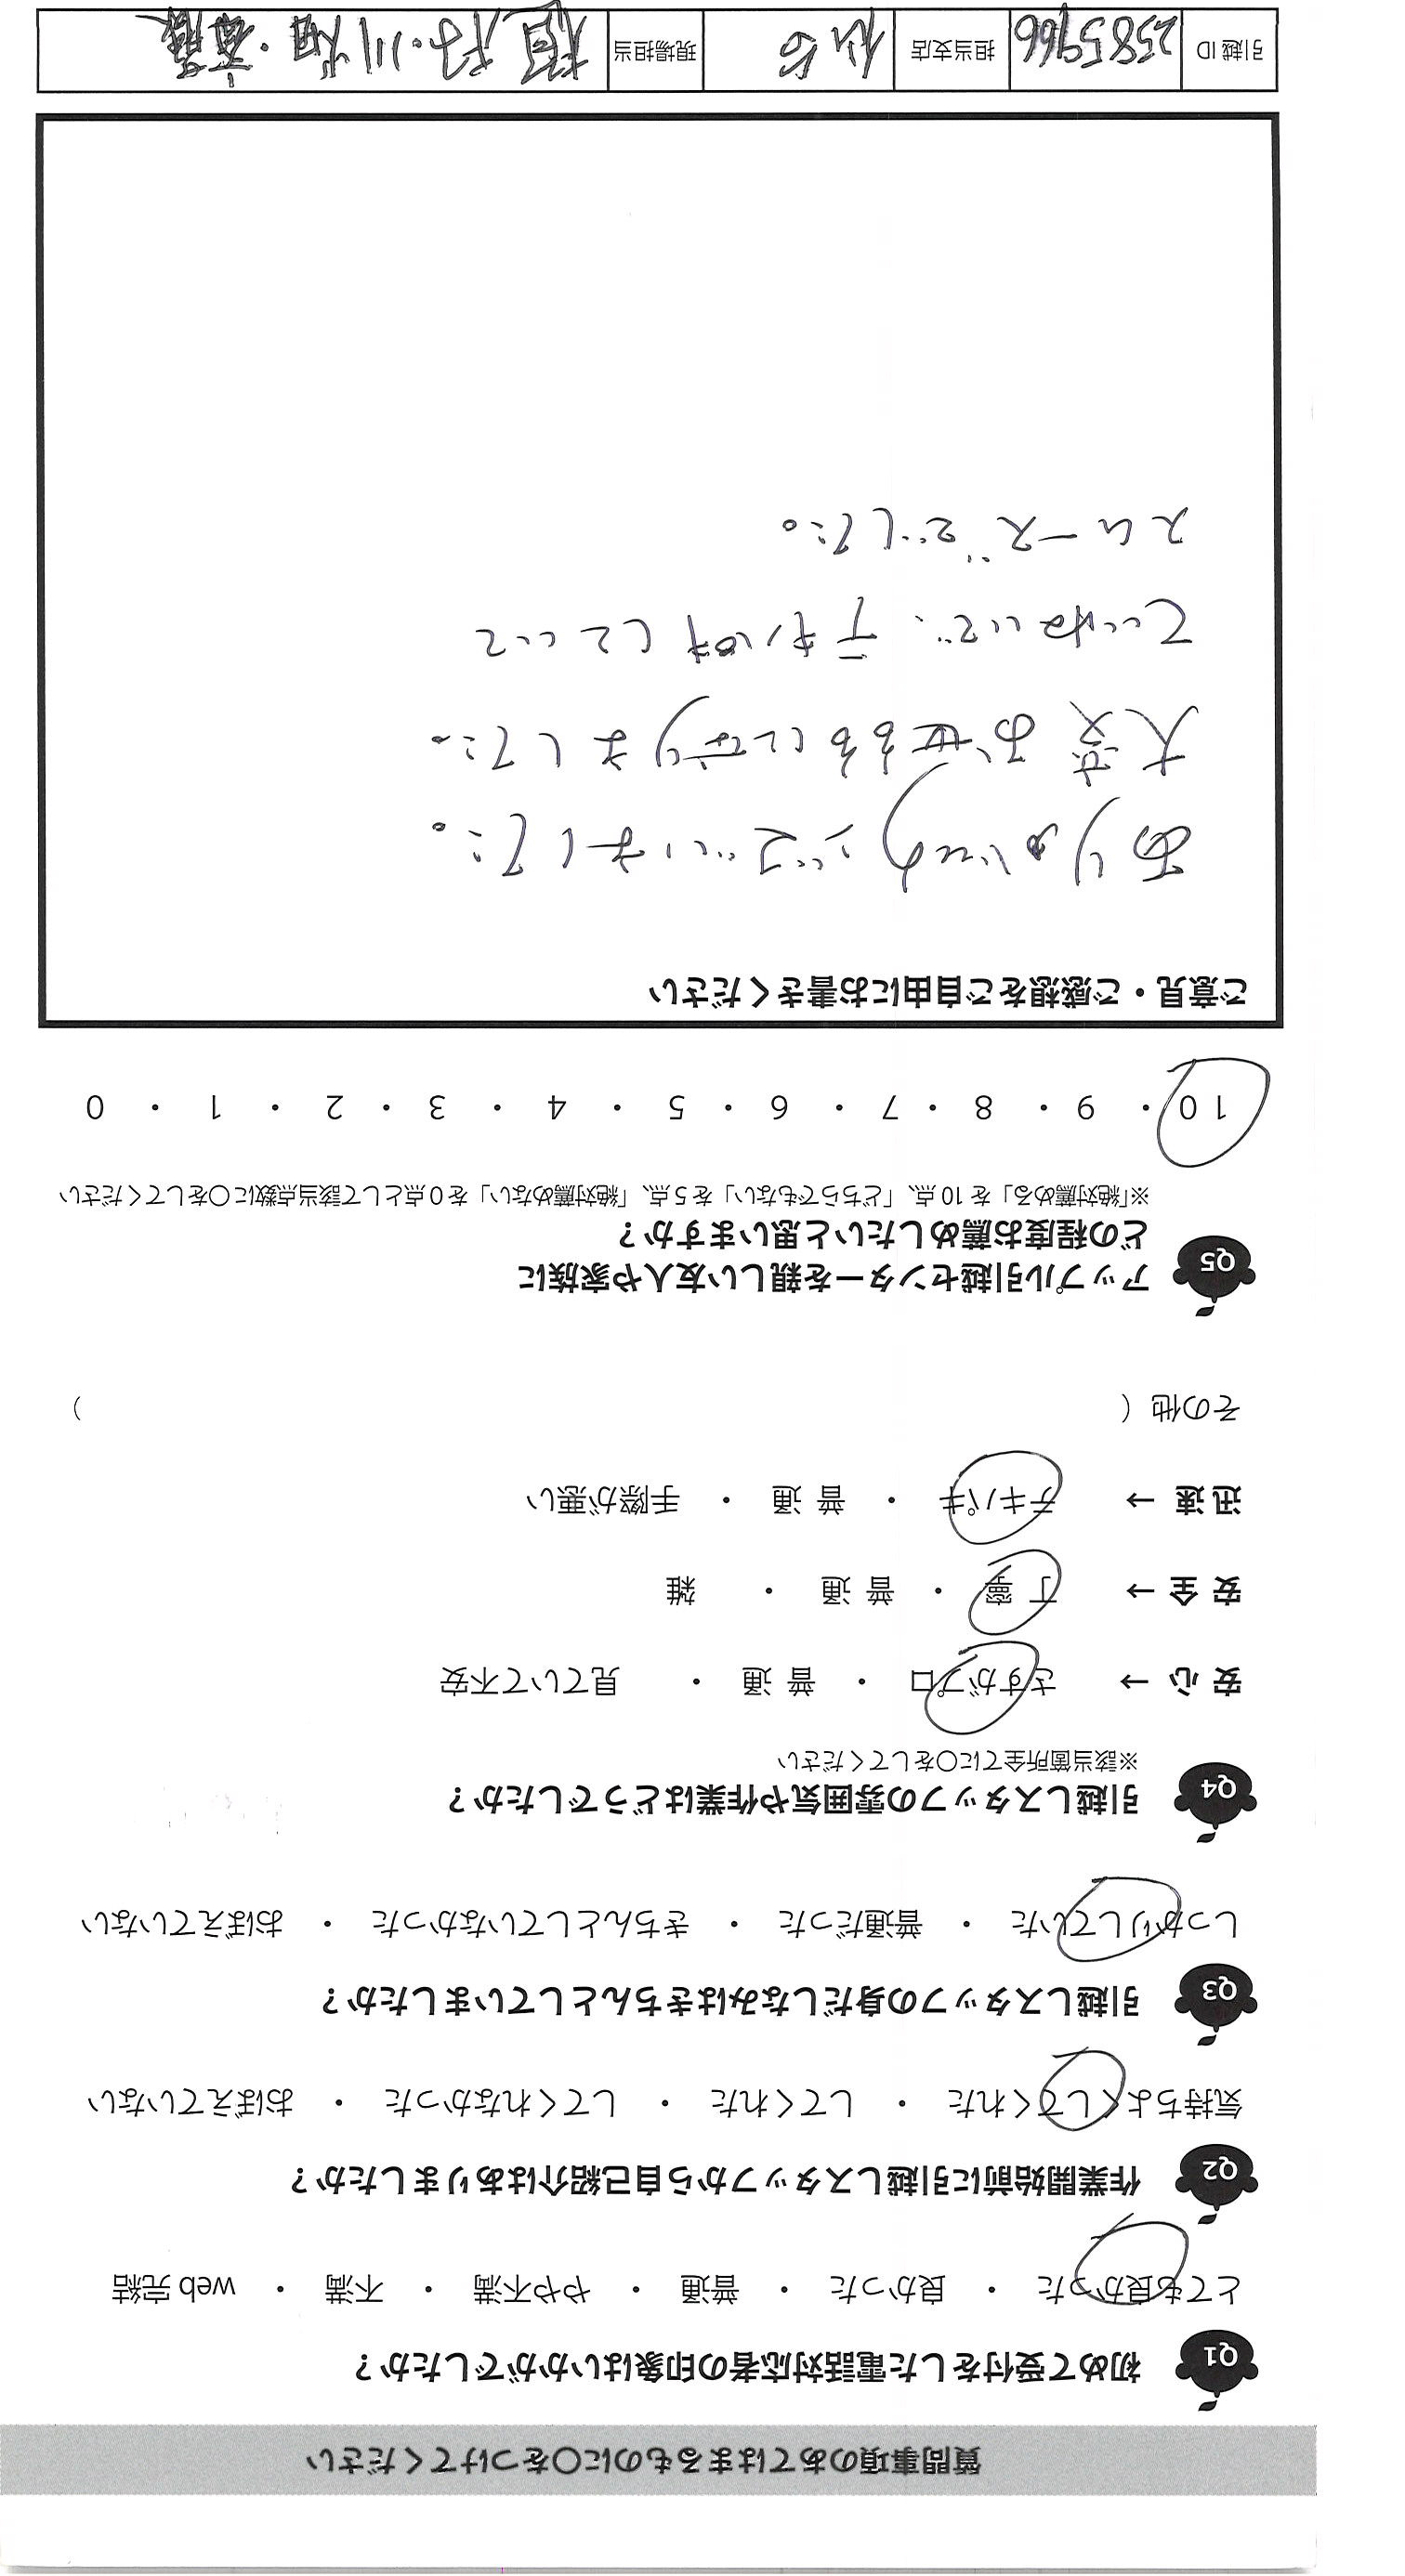 質問事項のあてはまるものに○をつけてください
Q1 初めて受付をした電話対応者の印象はいかがでしたか？
とても良かった ・ 良かった ・ 普通 ・ やや不満 ・ 不満 ・ web 完結
Q2 作業開始前に引越しスタッフから自己紹介はありましたか？
気持ちよくしてくれた ・ してくれた ・ してくれなかった ・ おぼえていない
Q3 引越しスタッフの身だしなみはきちんとしていましたか？
しっかりしていた ・ 普通だった ・ きちんとしていなかった ・ おぼえていない
Q4 引越しスタッフの雰囲気や作業はどうでしたか？
※該当箇所全てに○をしてください
安 心 → さすがプロ ・ 普 通 ・ 見ていて不安
安 全 → 丁 寧 ・ 普 通 ・ 雑
迅 速 → テキパキ ・ 普 通 ・ 手際が悪い
その他（ ）
Q5 アップル引越センターを親しい友人や家族に
どの程度お薦めしたいと思いますか？
※「絶対薦める」を 10 点、「どちらでもない」を 5 点、「絶対薦めない」を 0 点として該当点数に○をしてください
10 ・ 9 ・ 8 ・ 7 ・ 6 ・ 5 ・ 4 ・ 3 ・ 2 ・ 1 ・ 0
ご意見・ご感想をご自由にお書きください
ありがとうございました。
大変お世話になりました。
ていねいで、テキパキしていて
スムーズでした。
引越 ID 2585966 担当支店 仙台 現場担当 川畑・斎藤